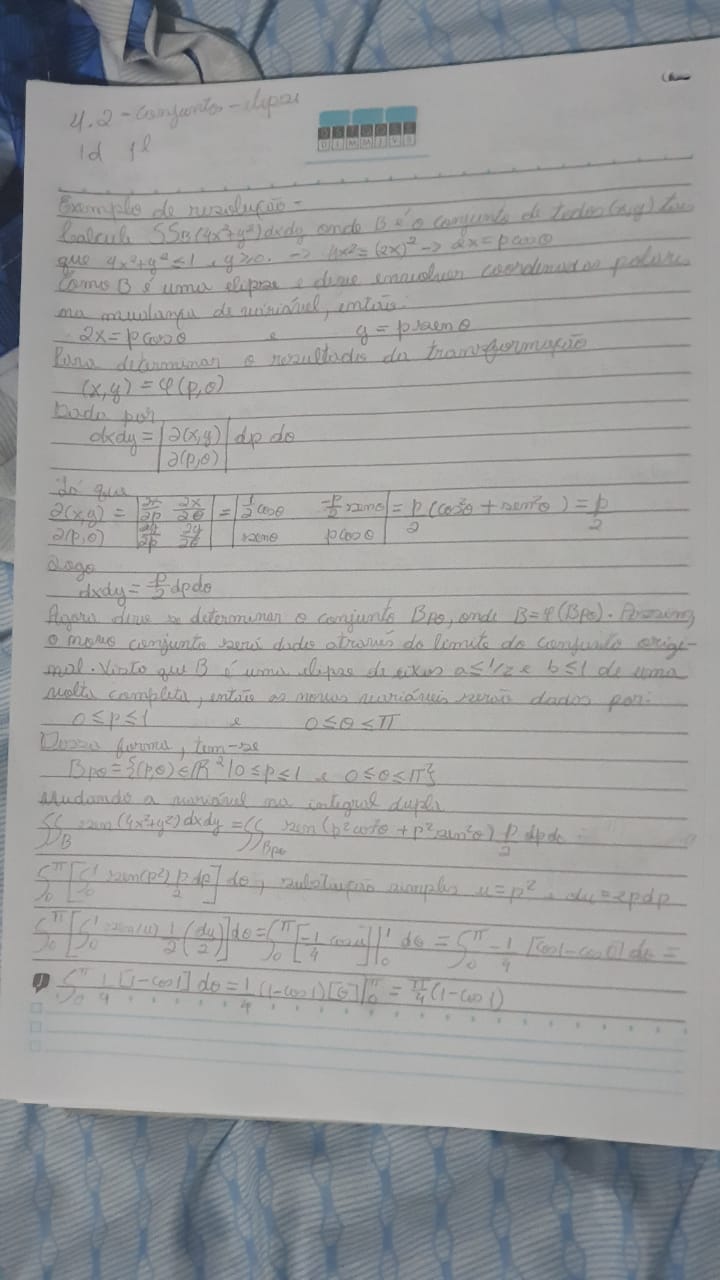 4.2 - conjunto - elipse
1d 1l
Exemplo de resolução -
Calcule ∫∫B (4x²+y²) dxdy onde B é o conjunto de todos (x,y) tais
que 4x²+y² ≤ 1, y ≥ 0. → 4x² = (2x)² → 2x = ρcosθ
Como B é uma elipse e deve envolver coordenadas polares
na mudança de variável, então:
2x = ρcosθ e y = ρsenθ
Para determinar o resultado da transformação
(x,y) = φ(ρ,θ)
Dado por
dxdy = |∂(x,y)/∂(ρ,θ)| dρ dθ
Já que
∂(x,y)/∂(ρ,θ) = |∂x/∂ρ ∂x/∂θ; ∂y/∂ρ ∂y/∂θ| = |1/2 cosθ -ρ/2 senθ; senθ ρcosθ| = ρ/2 (cos²θ + sen²θ) = ρ/2
Logo
dxdy = ρ/2 dρdθ
Agora deve se determinar o conjunto Bρθ, onde B = φ(Bρθ). Assim,
o novo conjunto será dado através do limite do conjunto origi-
nal. Visto que B é uma elipse de eixos a ≤ 1/2 e b ≤ 1 de uma
volta completa, então as novas variáveis serão dados por:
0 ≤ ρ ≤ 1 e 0 ≤ θ ≤ π
Dessa forma, tem-se
Bρθ = {(ρ,θ) ∈ ℝ² | 0 ≤ ρ ≤ 1 e 0 ≤ θ ≤ π}
Mudando a variável na integral dupla
∫∫B sen(4x²+y²) dxdy = ∫∫Bρθ sen(ρ²cos²θ + ρ²sen²θ) ρ/2 dρdθ
∫0^π [∫0^1 sen(ρ²) ρ/2 dρ] dθ, substituição simples u = ρ², du = 2ρdρ
∫0^π [∫0^1 sen(u) 1/2 (du/2)] dθ = ∫0^π [-1/4 cosu]|0^1 dθ = ∫0^π -1/4 [cos1 - cos0] dθ =
∫0^π 1/4 [1-cos1] dθ = 1/4 (1-cos1) [θ]|0^π = π/4 (1-cos1)